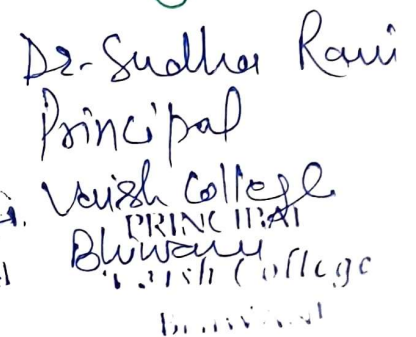 Dr. Sudha Rani
Principal
Vaish College
PRINCIPAL
Bhiwani
Vaish College